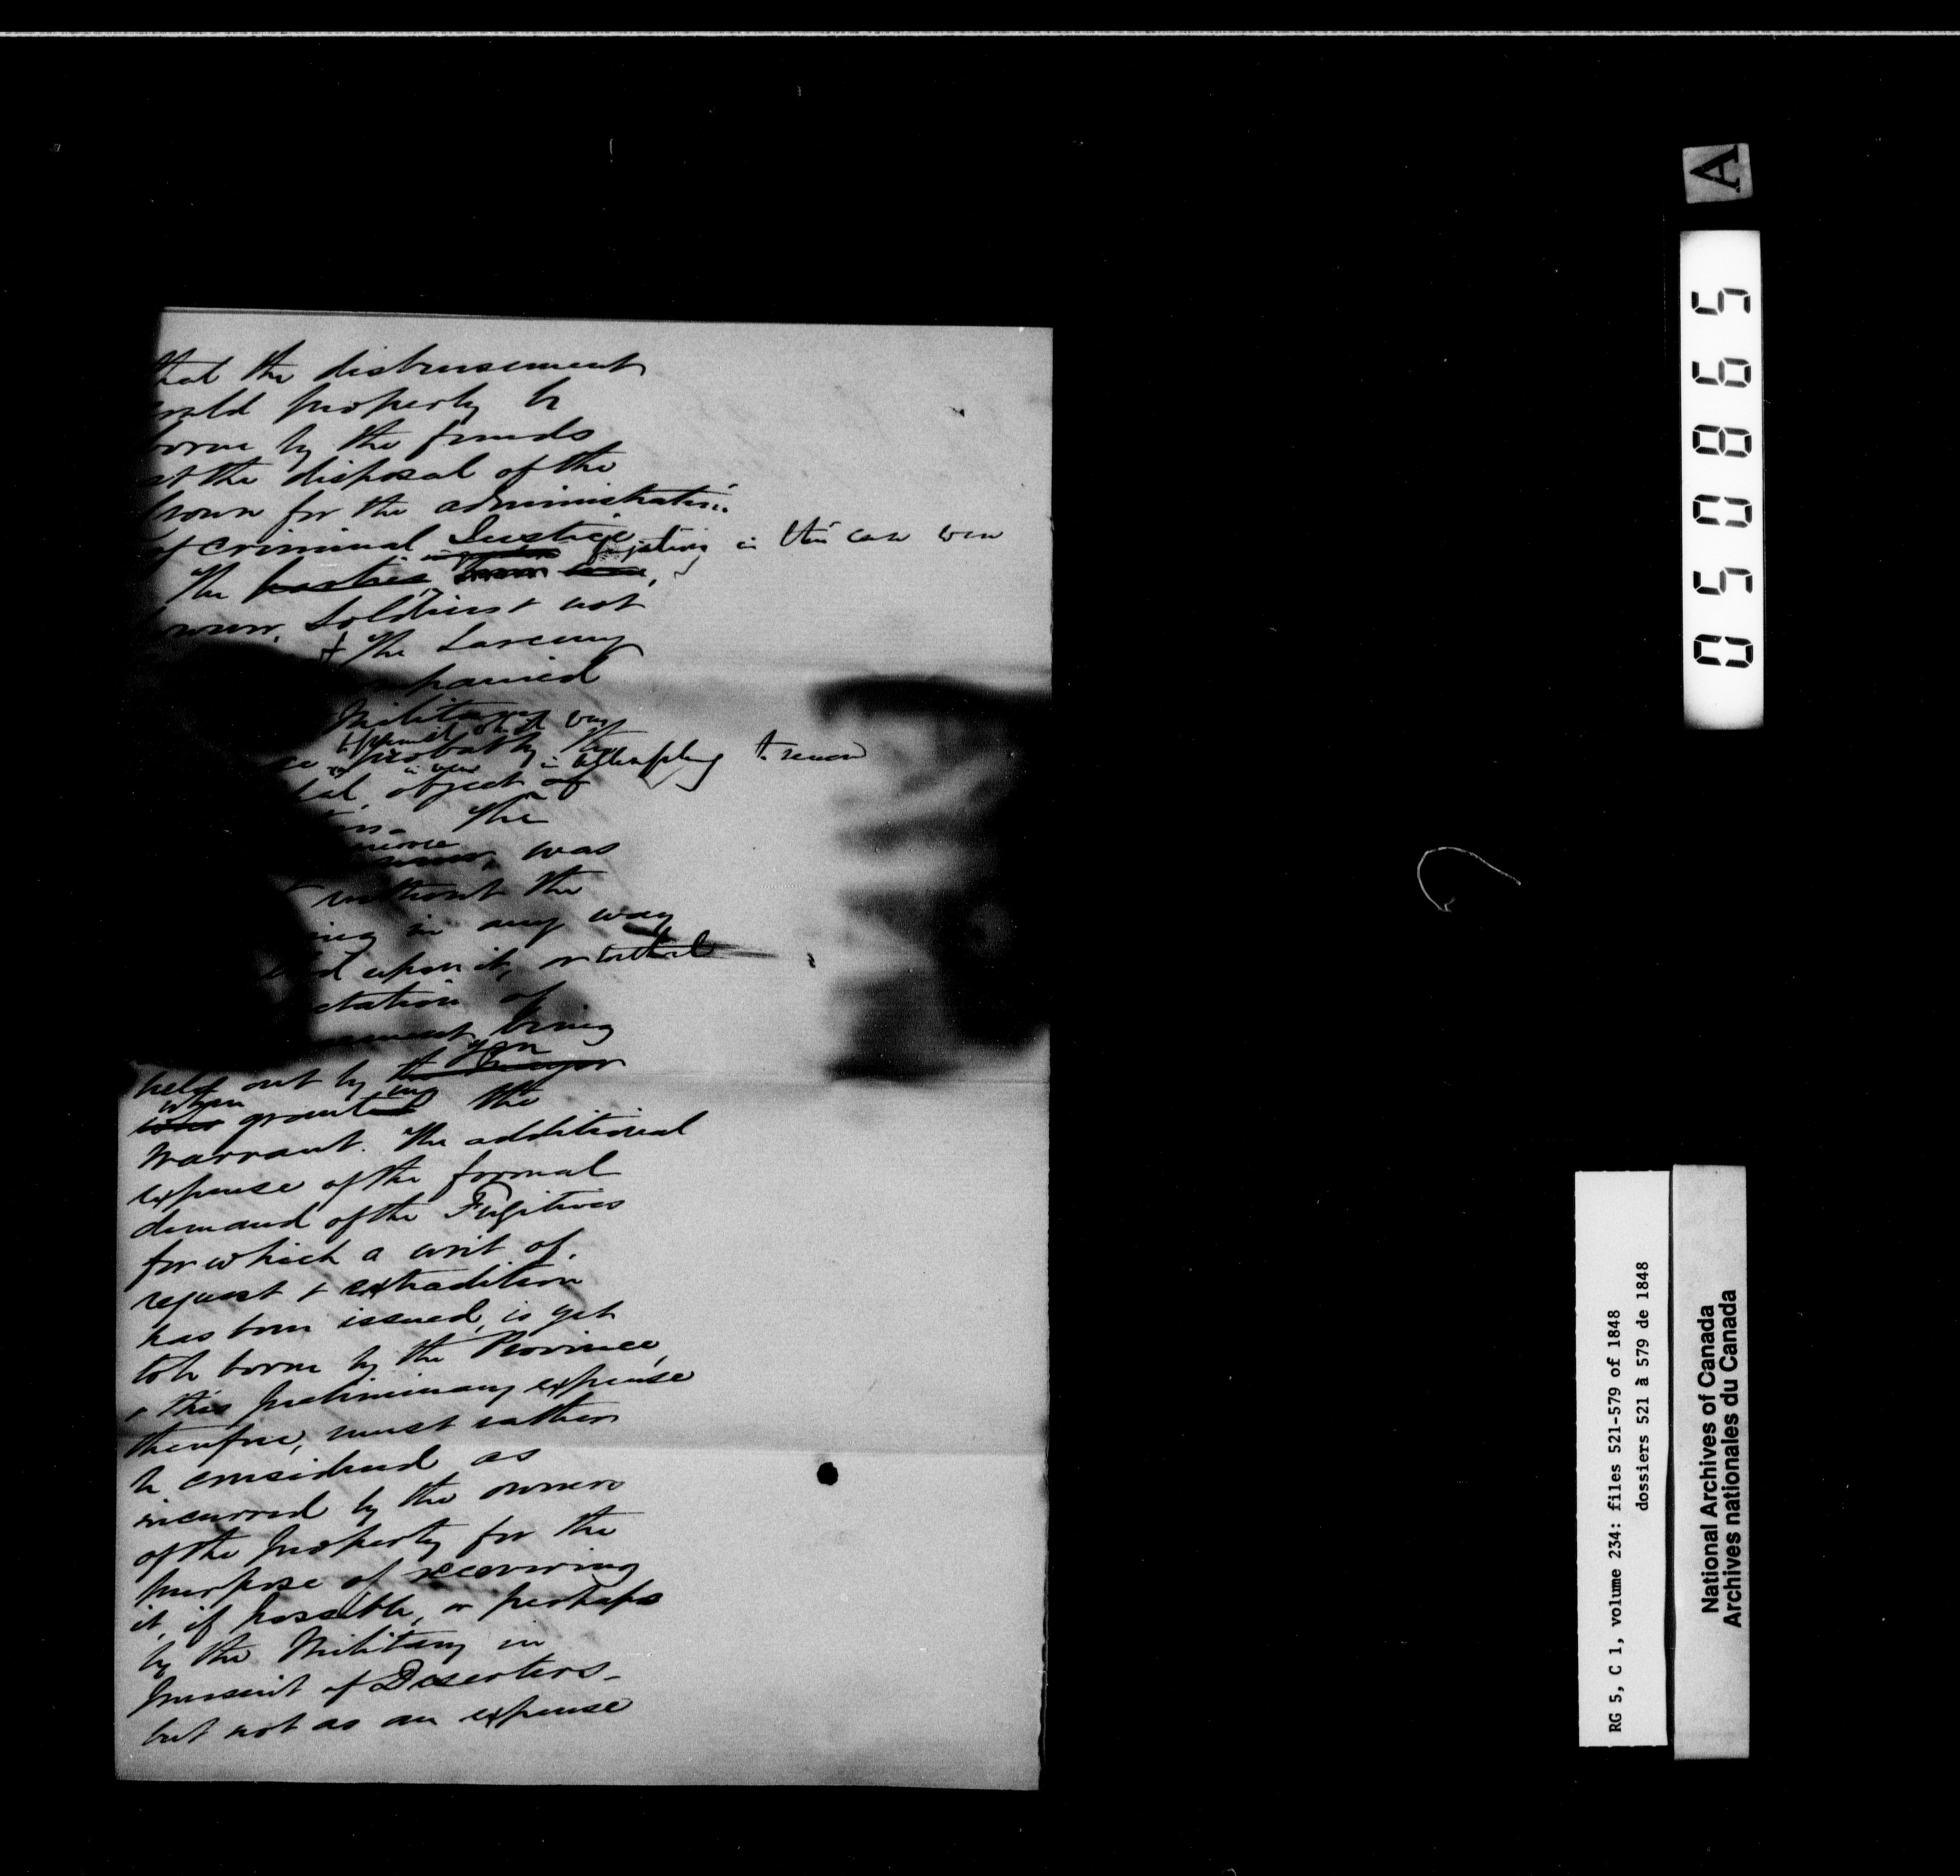 that the disbursement
could properly be
borne by the funds
at the disposal of the
Crown for the administration
of criminal Justice
fugitives in this case were
The parties
Soldiers & not
& the Larceny
Military
probably the
in attempting to
object of
The
was
without the
in any way
upon it, or
of
being
you
held out by the
when ing
granted the
Warrant. The additional
expense of the formal
demand of the Fugitives
for which a writ of
request & extradition
has been issued, is yet
to be borne by the Province,
& this preliminary expense
therefore, must rather
be considered as
incurred by the owners
of the property for the
purpose of recovering
it, if possible, or perhaps
by the Military in
pursuit of Deserters-
but not as an expense
A
050865
RG 5, C 1, volume 234: files 521-579 of 1848
dossiers 521 à 579 de 1848
National Archives of Canada
Archives nationales du Canada